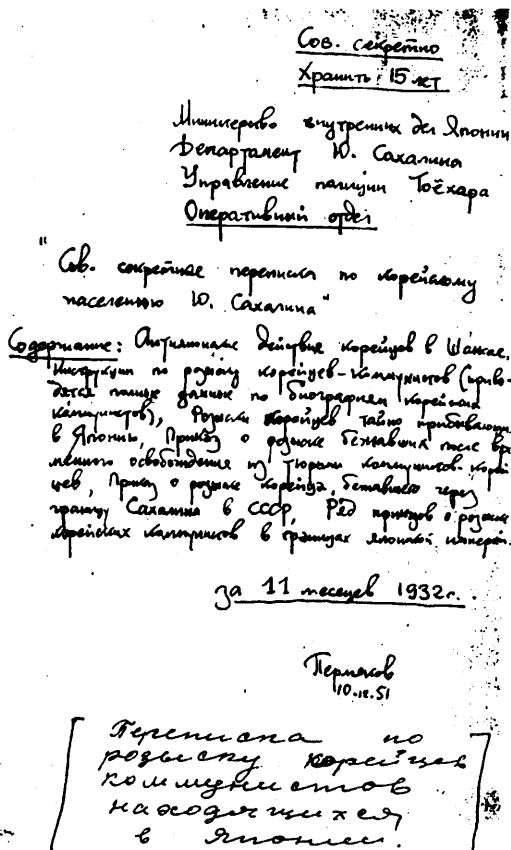 Сов. секретно
Хранить 15 лет
Министерство внутренних дел Японии
Департамент Ю. Сахалина
Управление полиции Тоёхара
Оперативный отдел
"Сов. секретная переписка по корейскому
населению Ю. Сахалина"
Содержание: Антияпонские действия корейцев в Шанхае,
Инструкции по розыску корейцев-коммунистов (приво-
дятся полные данные по биографиям корейских
коммунистов), Розыски корейцев тайно прибывающих
в Японию, Приказ о розыске бежавших после вре
менного освобождения из тюрьмы коммунистов-корей
цев, Приказ о розыске корейца, бежавшего через
границу Сахалина в СССР, Ряд приказов о розыске
корейских коммунистов в границах японской импери
за 11 месецев 1932г.
Пермяков
10.IX.51
Переписка по
розыску корейцев
коммунистов
находящихся
в Японии.